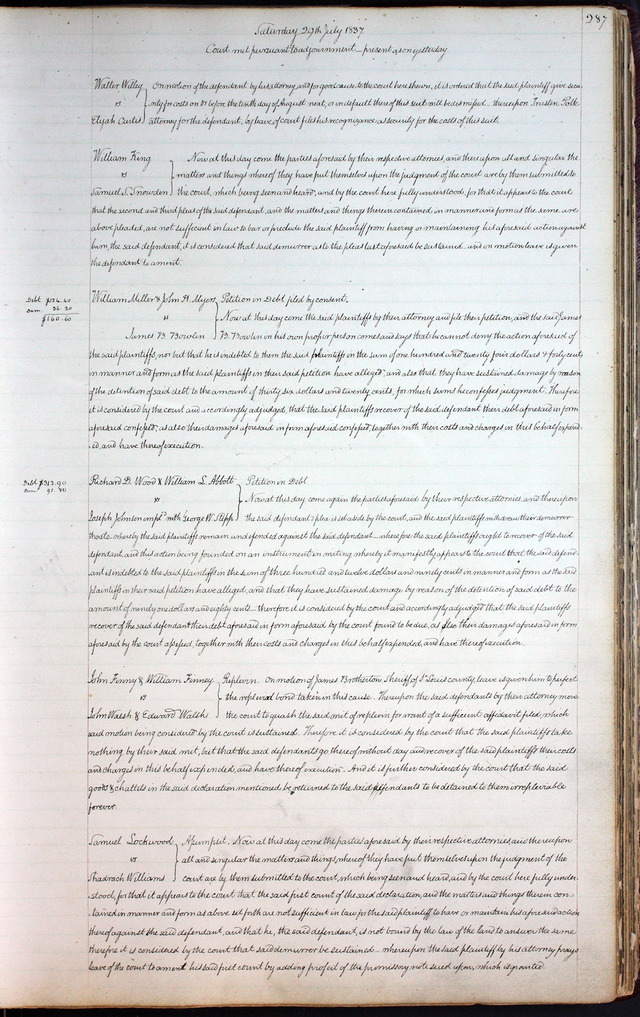 287
Saturday 29th July 1837
Court met pursuant to adjournment – present as on yesterday
Walter Willey } On motion of the defendant by his attorney, and for good cause to the court here shown, it is ordered that the said plaintiff give secu-
vs rity for costs on or before the tenth day of August next, or in default thereof this suit will be dismissed. thereupon Trusten Polk
Elijah Curtis attorney for the defendant, by leave of court files his recognizance as security for the costs of this suit.
William King } Now at this day come the parties aforesaid by their respective attornies, and thereupon all and singular the
vs matters and things whereof they have put themselves upon the judgment of the court are by them submitted to
Samuel S. Snowden the court, which being seen and heard, and by the court here fully understood, for that it appears to the court
that the second and third pleas of the said defendant, and the matters and things therein contained in manner and form as the same are
above pleaded, are not sufficient in law to bar or preclude the said plaintiff from having or maintaining his aforesaid action against
him, the said defendant, it is considered that said demurrer as to the pleas last aforesaid be sustained – and on motion leave is given
the defendant to amend.
Debt $124.40
Dam. 36.20
$160.60
William Miller & John H. Myers } Petition in Debt filed by consent.
vs Now at this day come the said plaintiffs by their attorney and file their petition, and the said James
James B. Bowlin B. Bowlin in his own proper person comes and says that he cannot deny the action aforesaid of
the said plaintiffs, nor but that he is indebted to them the said plaintiffs in the sum of one hundred and twenty four dollars & forty cents
in manner and form as the said plaintiffs in their said petition have alleged, and also that they have sustained damage by reason
of the detention of said debt to the amount of thirty six dollars and twenty cents, for which sums he confesses judgment. Therefore
it is considered by the court and accordingly adjudged, that the said plaintiffs recover of the said defendant their debt aforesaid in form
aforesaid confessed, as also their damages aforesaid in form aforesaid confessed, together with their costs and charges in this behalf expend-
ed, and have thereof execution.
Debt $312.90
Dam. 91.80
Richard D. Wood & William L. Abbott } Petition in Debt
vs Now at this day come again the parties aforesaid by their respective attornies, and thereupon
Joseph Johnson impd. with George W. Stepp the said defendant's plea is set aside by the court, and the said plaintiffs withdraw their demurrer
thereto whereby the said plaintiffs remain undefended against the said defendant – wherefore the said plaintiffs ought to recover of the said
defendant, and this action being founded on an instrument in writing whereby it manifestly appears to the court that the said defend-
ant is indebted to the said plaintiffs in the sum of three hundred and twelve dollars and ninety cents in manner and form as the said
plaintiffs in their said petition have alleged, and that they have sustained damage by reason of the detention of said debt to the
amount of ninety one dollars and eighty cents – therefore it is considered by the court and accordingly adjudged that the said plaintiffs
recover of the said defendant their debt aforesaid in form aforesaid by the court found to be due, as also their damages aforesaid in form
aforesaid by the court assessed, together with their costs and charges in this behalf expended, and have thereof execution.
John Finney & William Finney } Replevin. On motion of James Brotherton, Sheriff of St Louis county, leave is given him to perfect
vs the replevied bond taken in this cause. Thereupon the said defendants by their attorney move
John Walsh & Edward Walsh the court to quash the said writ of replevin for want of a sufficient affidavit filed, which
said motion being considered by the court is sustained. Therefore it is considered by the court that the said plaintiffs take
nothing by their said writ, but that the said defendants go thereof without day and recover of the said plaintiffs their costs
and charges in this behalf expended, and have thereof execution. And it is further considered by the court that the said
goods & chattels in the said declaration mentioned be returned to the said defendants to be detained to them irrepleviable
forever.
Samuel Lockwood } Assumpsit. Now at this day come the parties aforesaid by their respective attornies, and thereupon
vs all and singular the matters and things whereof they have put themselves upon the judgment of the
Shadrach Williams court are by them submitted to the court, which being seen and heard, and by the court here fully under-
stood, for that it appears to the court that the said first count of the said declaration, and the matters and things therein con-
tained in manner and form as above set forth are not sufficient in law for the said plaintiff to have or maintain his aforesaid action
thereof against the said defendant, and that he, the said defendant, is not bound by the law of the land to answer the same
therefore it is considered by the court that said demurrer be sustained – whereupon the said plaintiff by his attorney prays
leave of the court to amend his said first count by adding profert of the promissory note sued upon, which is granted.